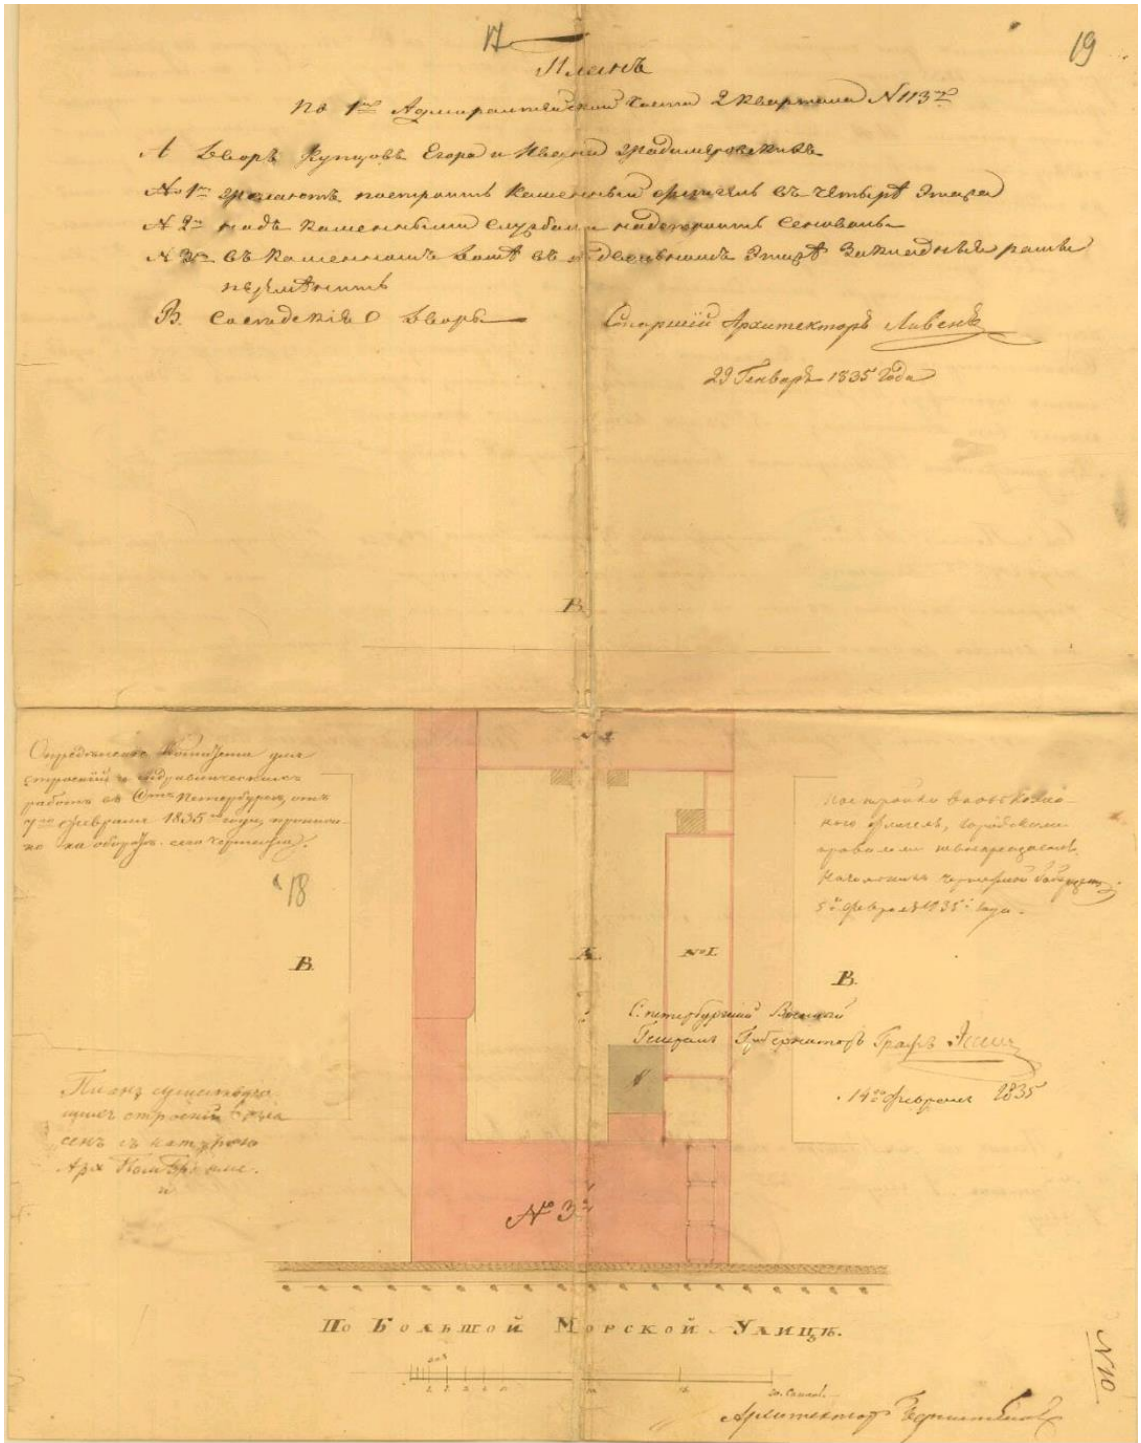 19
Планъ
По 1й Адмиралтейской части 2 Квартала N 113го
А Дворъ Купцовъ Егора и Ивана
No 1й Желаютъ построить Каменный флигель въ четыре этажа
N 2й надъ каменными службами надстроить сеновалъ
N 3й въ каменномъ домѣ въ этажѣ Закладныя рамы
В. Соседскіе Дворы
Старшій Архитекторъ Ливенъ
29 Генваря 1835 Года
В
Опредѣленіе Комитета для
строеній и гидравлическихъ
работъ въ Санктпетербургѣ, отъ
7го февраля 1835го года, прописа-
но на оборотѣ сего чертежа.
18
Постройка вновь камен-
наго флигеля, городскими
правилами не воспрещается.
5го февраля 1835го года.
В.
А
No 1.
В.
С. петербургскій Военный
Генералъ Губернаторъ Графъ Эссенъ
14го февраля 1835
Планъ существую
щихъ строеній
сенъ съ натурою
Арх
No 3й
По Большой Морской Улицѣ.
10
20. Сажень
N 10
Архитекторъ